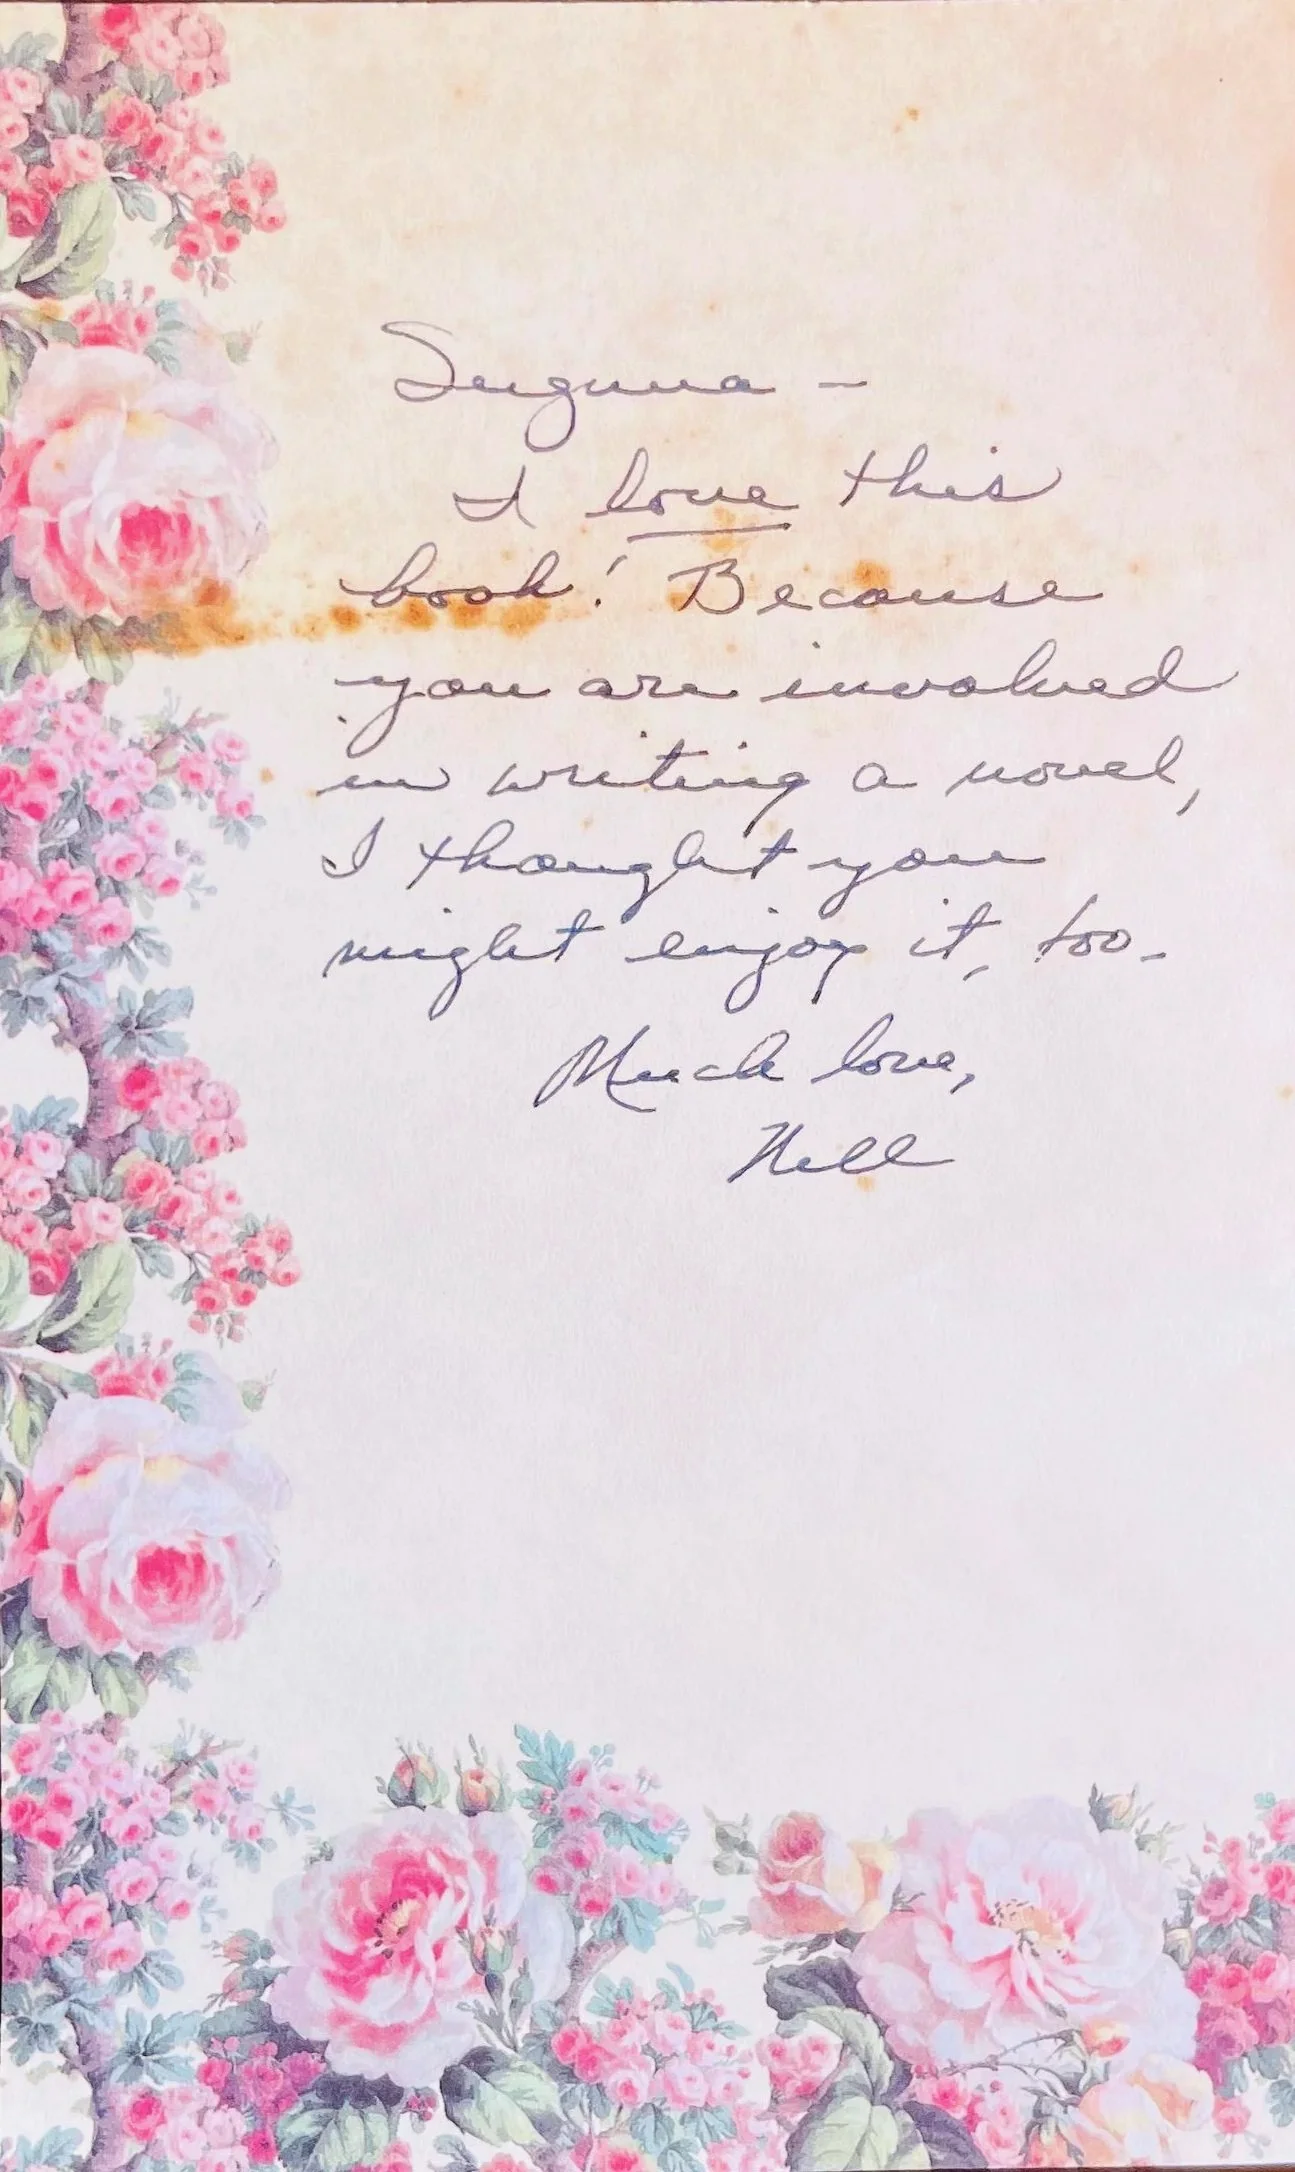 Suguna -
I love this
book! Because
you are involved
in writing a novel,
I thought you
might enjoy it, too.
Much love,
Nell